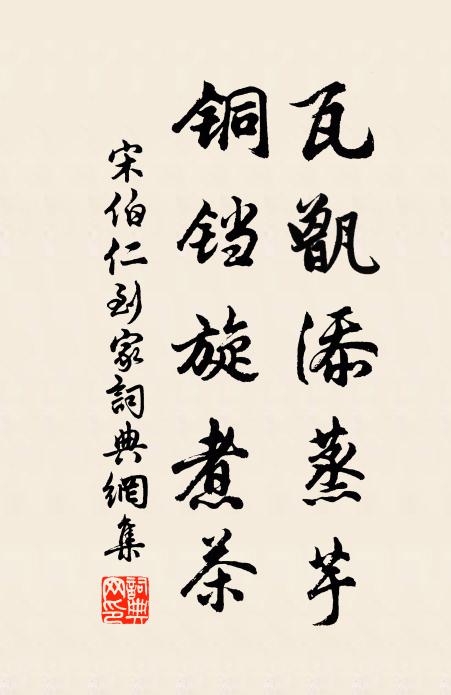 瓦甑添蒸芋
铜铛旋煮茶
宋伯仁到家詞典網集
詞典网印